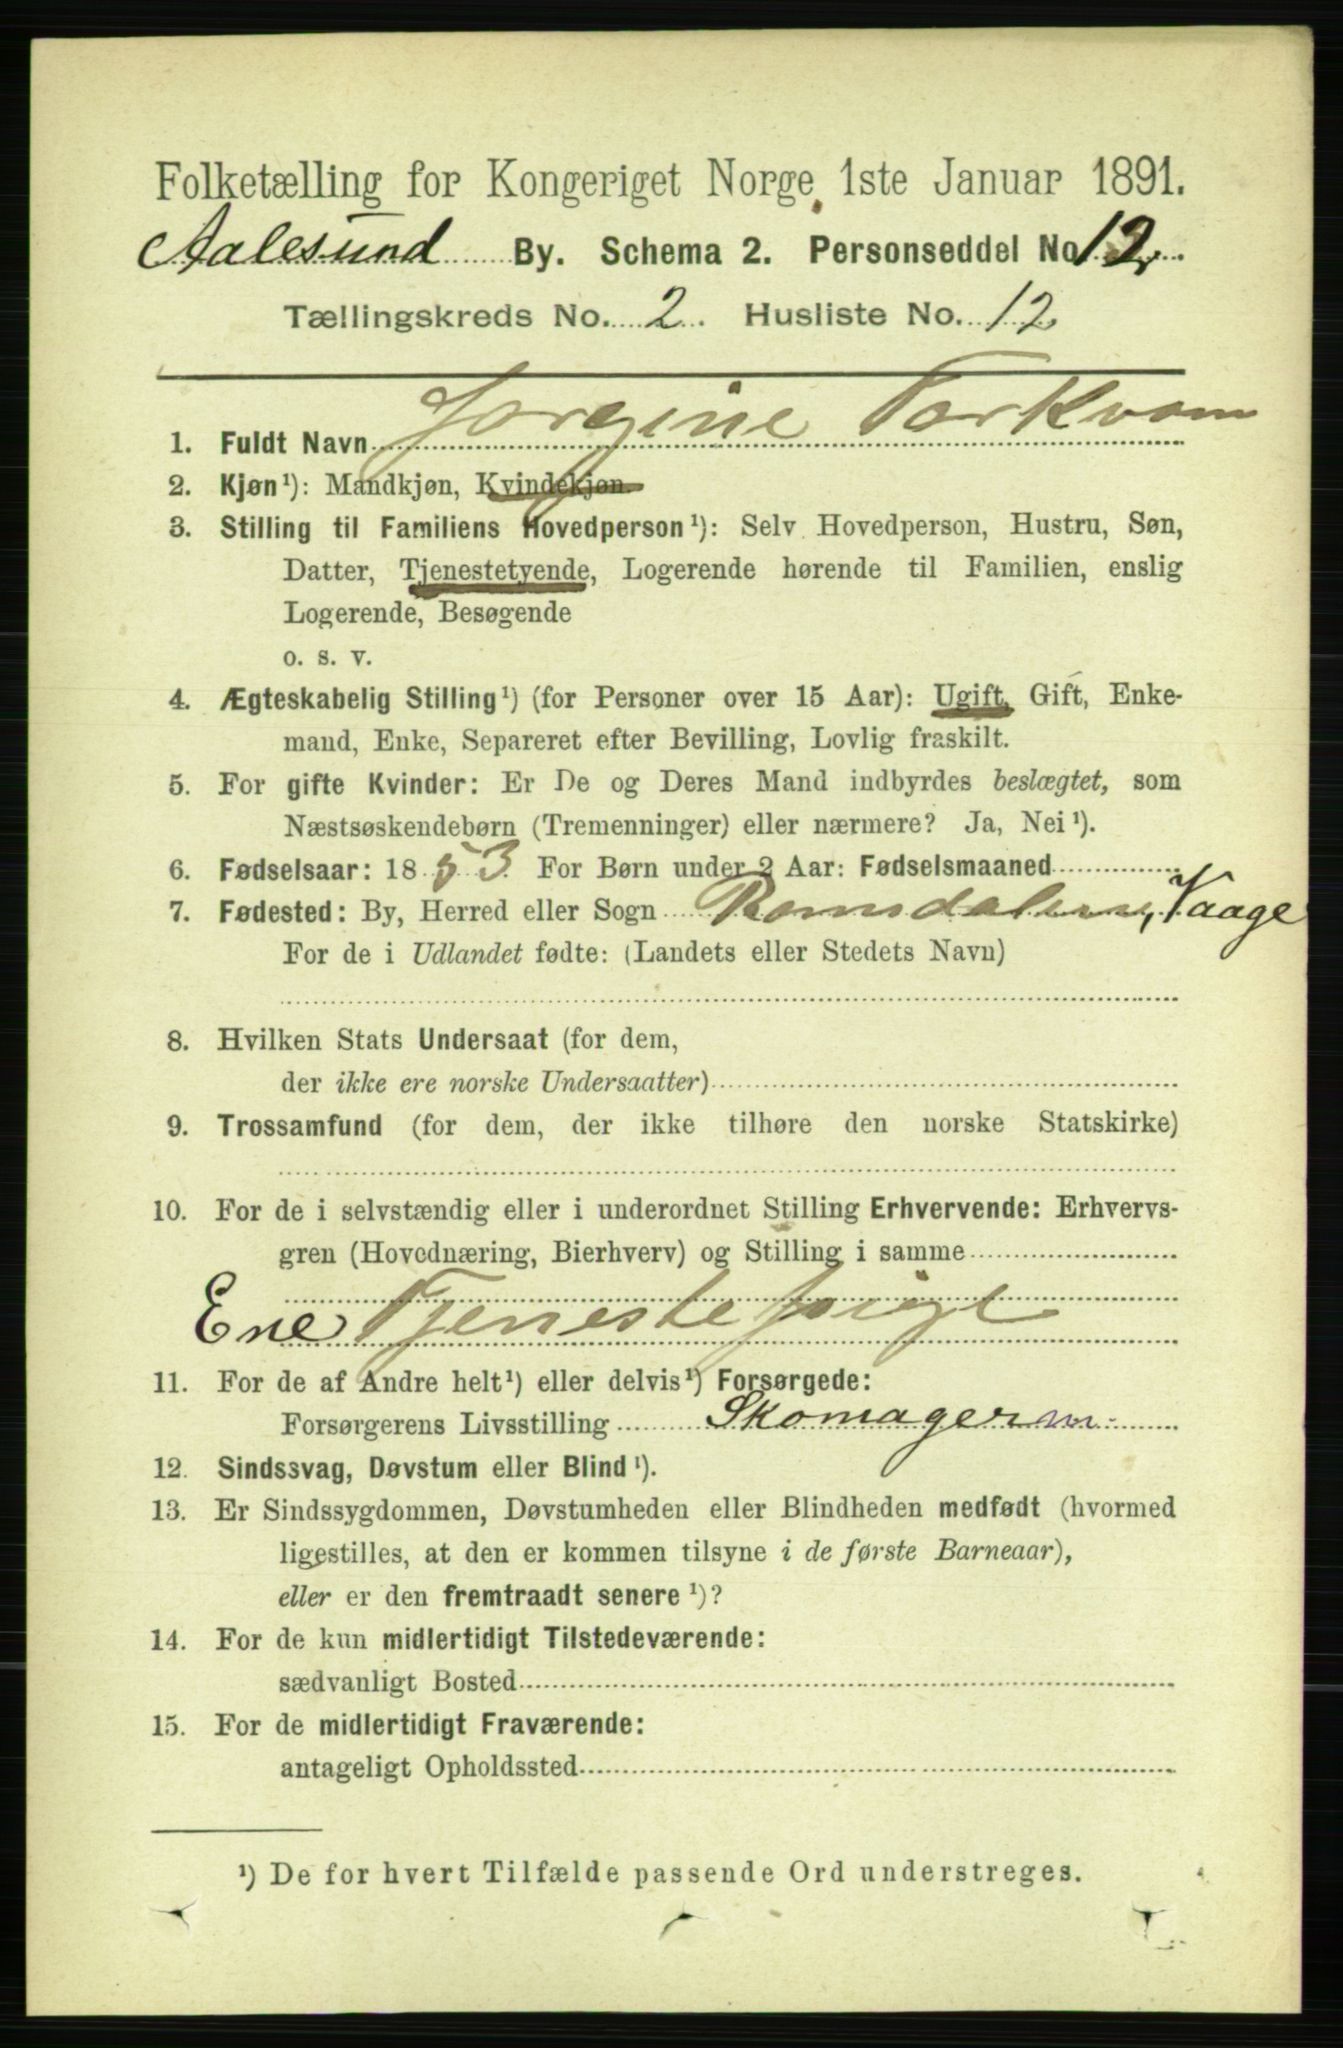 Folketælling for Kongeriget Norge 1ste Januar 1891.
Aalesund By. Schema 2. Personseddel No 12.
Tællingskreds No. 2. Husliste No. 12
1. Fuldt Navn Jorgine Torkvam
2. Kjøn¹): Mandkjøn, Kvindekjøn
3. Stilling til Familiens Hovedperson¹): Selv Hovedperson, Hustru, Søn,
Datter, Tjenestetyende, Logerende hørende til Familien, enslig
Logerende, Besøgende
o. s. v.
4. Ægteskabelig Stilling¹) (for Personer over 15 Aar): Ugift, Gift, Enke-
mand, Enke, Separeret efter Bevilling, Lovlig fraskilt.
5. For gifte Kvinder: Er De og Deres Mand indbyrdes beslægtet, som
Næstsøskendebørn (Tremenninger) eller nærmere? Ja, Nei¹).
6. Fødselsaar: 1853 For Børn under 2 Aar: Fødselsmaaned
7. Fødested: By, Herred eller Sogn Romsdalen, Vaage
For de i Udlandet fødte: (Landets eller Stedets Navn)
8. Hvilken Stats Undersaat (for dem,
der ikke ere norske Undersaatter)
9. Trossamfund (for dem, der ikke tilhøre den norske Statskirke)
10. For de i selvstændig eller i underordnet Stilling Erhvervende: Erhvervs-
gren (Hovednæring, Bierhverv) og Stilling i samme
Ene Tjenestepige
11. For de af Andre helt¹) eller delvis¹) Forsørgede:
Forsørgerens Livsstilling Skomagerm.
12. Sindssvag, Døvstum eller Blind¹).
13. Er Sindssygdommen, Døvstumheden eller Blindheden medfødt (hvormed
ligestilles, at den er kommen tilsyne i de første Barneaar),
eller er den fremtraadt senere¹)?
14. For de kun midlertidigt Tilstedeværende:
sædvanligt Bosted
15. For de midlertidigt Fraværende:
antageligt Opholdssted
¹) De for hvert Tilfælde passende Ord understreges.